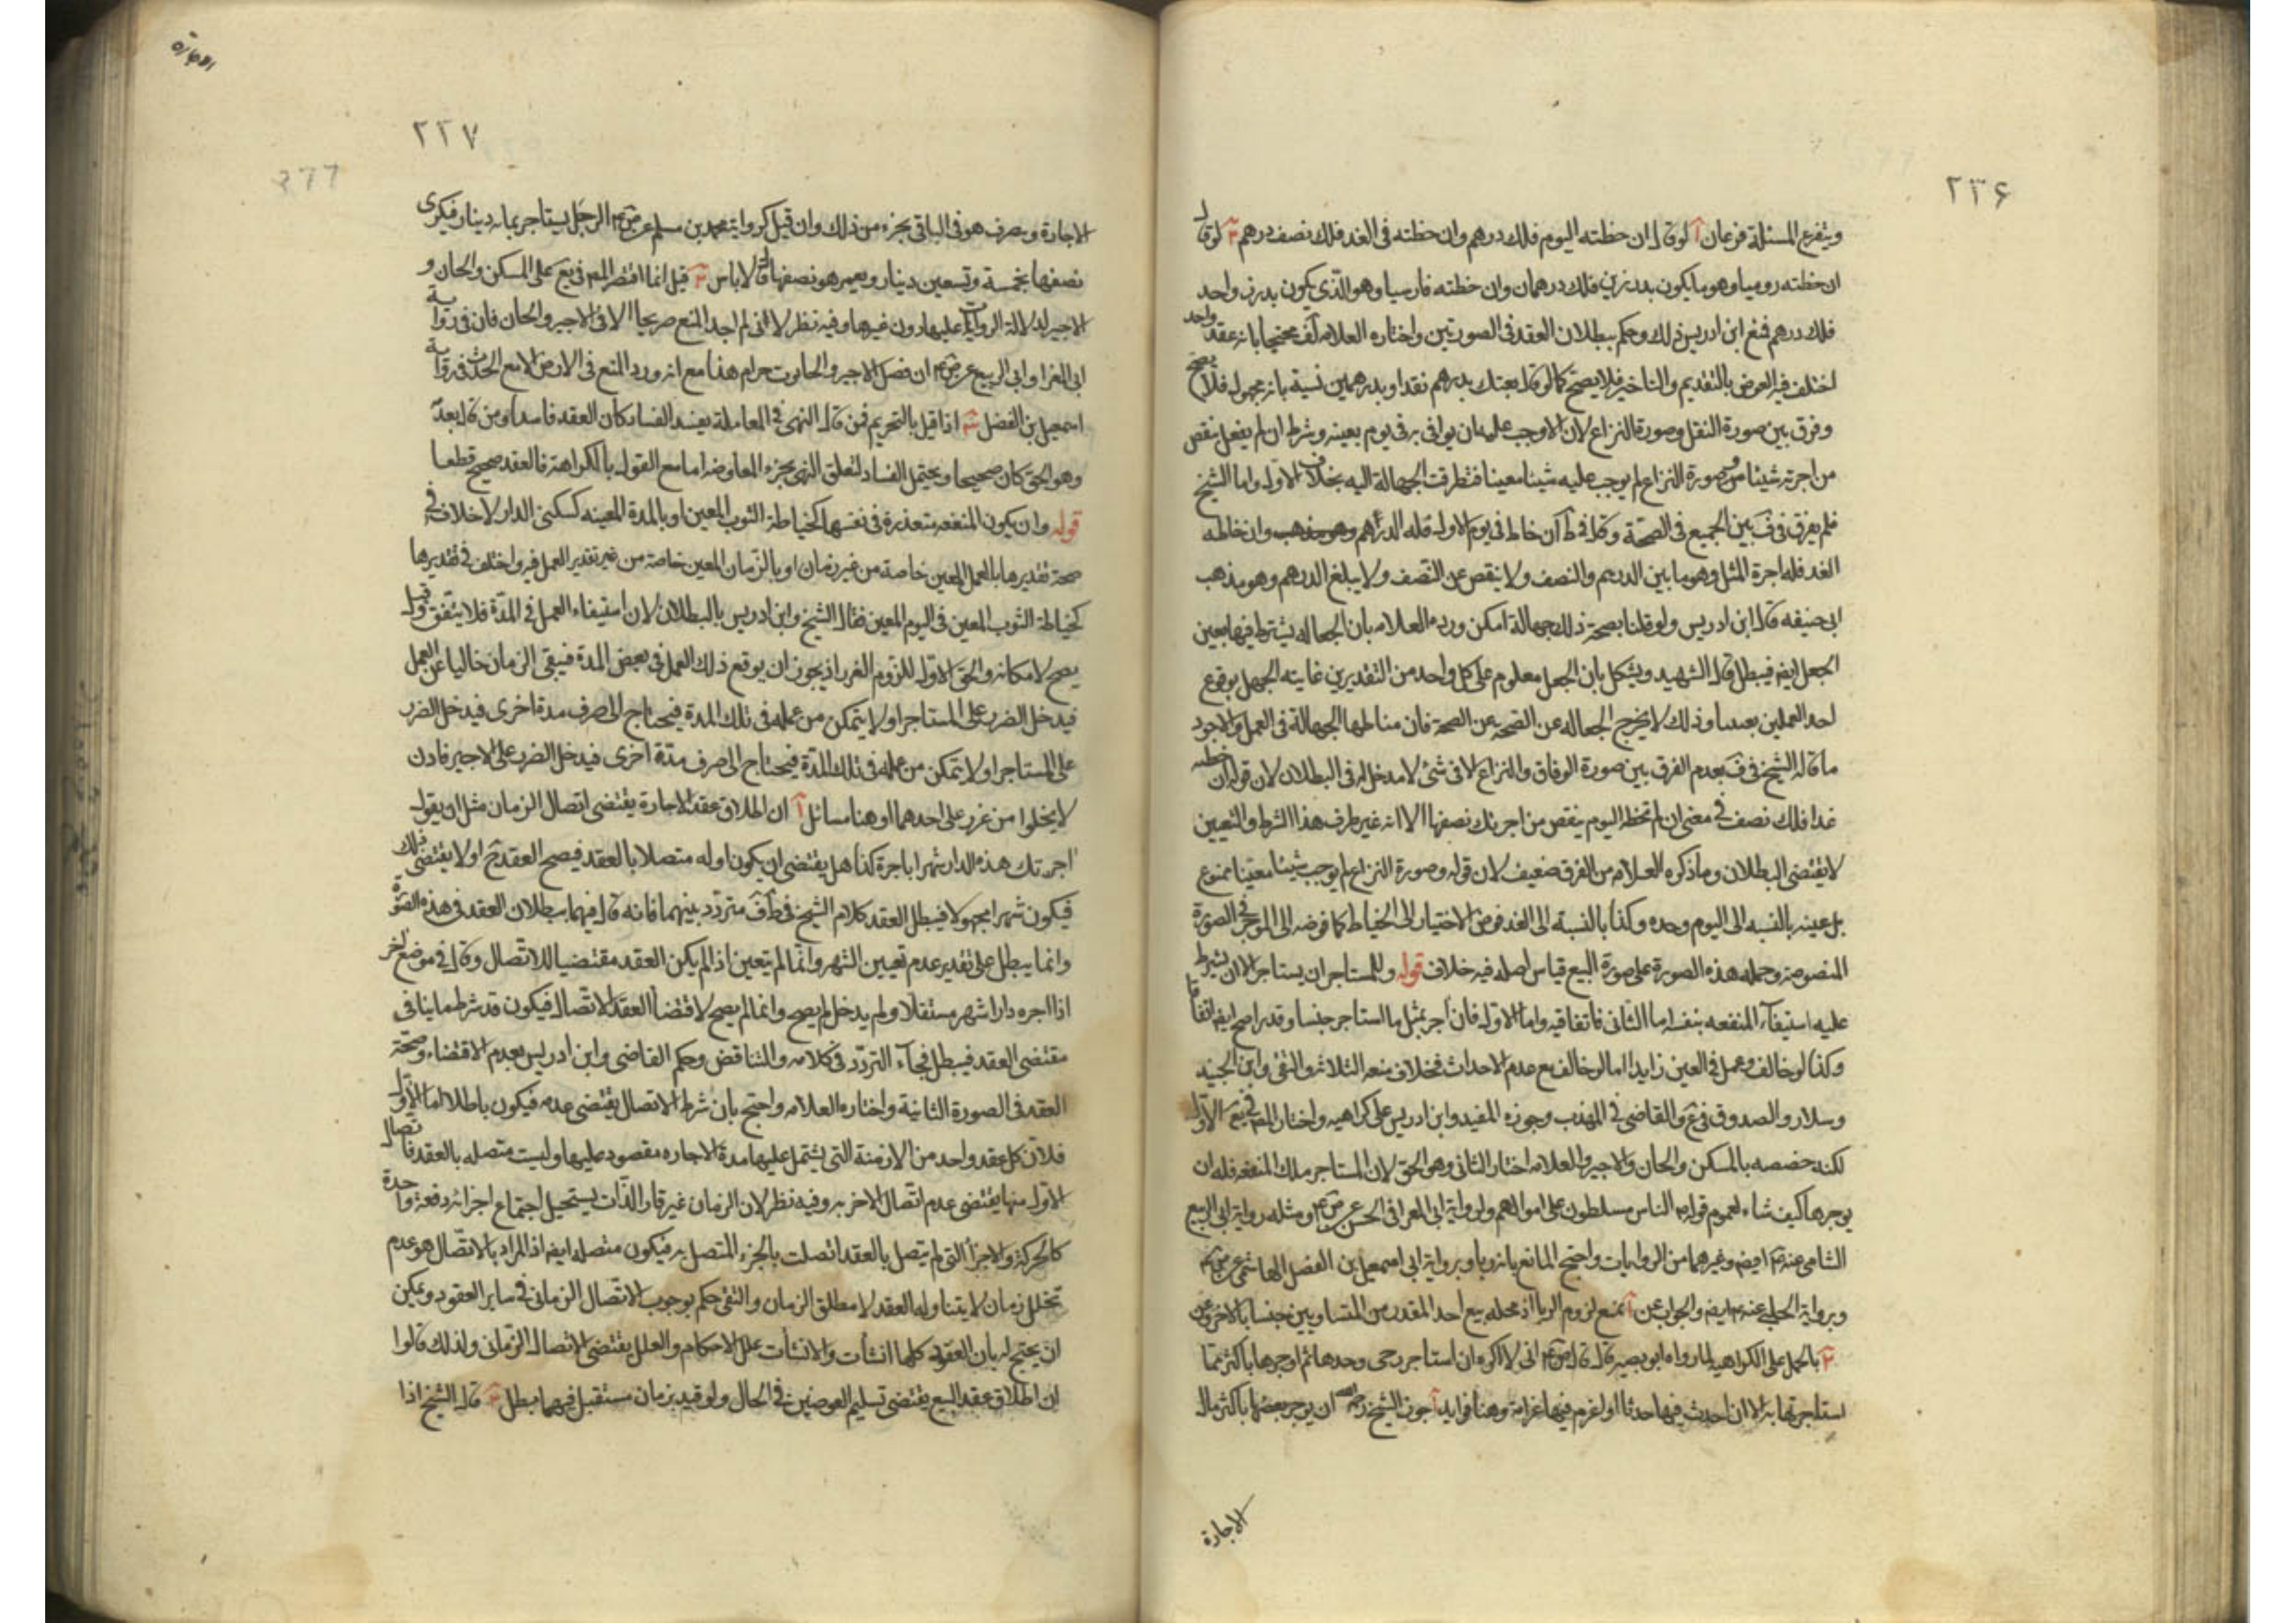 ٢٣۶
ويتفرع المسئلة فرعان آ لو قال ان خطته اليوم فلك درهم وان خطته فى الغد فلك نصف درهم ٢ لو قال
ان خطته روميا وهو ما يكون بدرزين فلك درهمان وان خطته فارسيا وهو الذى يكون بدرز واحد
فلك درهم فمنع ابن ادريس ذلك وحكم ببطلان العقد فى الصورتين واختاره العلامه لف محتجا بانه عقد واحد
اختلف فيه العوض بالتقديم والتاخير فلا يصح كما لو قال بعتك بدرهم نقدا وبدرهمين نسية بانه مجهول فلا يصح
وفرق بين صورة النقل وصورة النزاع لان الاوجب عليه ان يوافى به فى يوم بعينه وشرط ان لم يفعل ينقص
من اجرته شيئا وفى صورة النزاع لم يوجب عليه شيئا معينا فتطرقت الجهالة اليه بخلاف الاول واما الشيخ
فلم يفرق فى ف بين الجميع فى الصحة وقال فى ط ان خاط فى يوم الاول فله الدرهم وهو مذهب وان خاطه
الغد فله اجرة المثل وهو ما بين الدرهم والنصف ولا ينقص عن النصف ولا يبلغ الدرهم وهو مذهب
ابى حنيفه قال ابن ادريس ولو قلنا بصحة ذلك جهالة امكن ورده العلامه بان الجعاله يشترط فيها تعين
الجعل ايضا فيبطل قال الشهيد ويشكل بان الجعل معلوم على كل واحد من التقديرين غايته الجهل بوقوع
احد العملين بعينه وذلك لا يخرج الجعاله عن الصحة عن الصحة فان مناطها الجهالة فى العمل والاجود
ما قاله الشيخ فى ف بعدم الفرق بين صورة الوفاق والنزاع الا فى شئ لا مدخل له فى البطلان لان قوله ان خطته
غدا فلك نصف فى معنى ان لم تخطه اليوم ينقص من اجرتك نصفها الا انه غير طرف هذا الشرط والتعيين
لا يقتضى البطلان وما ذكره العلامه من الفرق ضعيف لان قوله وصورة النزاع لم يوجب شيئا معينا ممنوع
بل عينه بالنسبه الى اليوم وحده وكذا بالنسبة الى الغد فوض الاختيار الى الخياط كما فوضه الى الموجر فى الصورة
المنصوصه وحمله هذه الصورة على صورة البيع قياس اصله فيه خلاف قوله وللمستاجر ان يستاجر الا ان يشترط
عليه استيفآء المنفعه بنفسه اما الثانى فاتفاقيه واما الاول فان أجر بمثل ما استاجر جنسا وقدرا صح ايضا اتفاقا
وكذا لو خالف وعمل فى العين زايدا اما لو خالف مع عدم الاحداث فخلاف منعه الثلاثه والتقى وابن الجنيد
وسلار والصدوق فى ع والقاضى فى المهذب وجوزه المفيد وابن ادريس على كراهيه واختار المص فى يع الاول
لكنه خصصه بالمسكن والخان والاجير والعلامه اختار الثانى وهو الحق لان المستاجر ملك المنفعه فله ان
يوجرها كيف شاء لعموم قوله الناس مسلطون على اموالهم ولرواية ابى المعزا فى الحسن عن ص ع ومثله رواية ابى الربيع
الشامى عنه ع ايضا وغيرهما من الروايات واحتج المانع بانه ربا وبرواية ابى اسمعيل بن الفضل الهاشمى عن ص ع
وبرواية الحلبى عنه ع ايضا والجواب عن آ بمنع لزوم الربا اذ محله بيع احد المقدرين المتساويين جنسا بالاخر وعن
٢ بالحمل على الكراهيه لما رواه ابو بصير قال قال ص ع انى لا اكره ان استاجر رحى وحدها ثم اوجرها باكثر مما
استاجرتها به الا ان احدث فيها حدثا او اغرم فيها غرامة وهنا فوايد آ جوز الشيخ رحمه الله ان يوجر بعضها باكثر مال
الاجارة
الاجارة
٢٣٧
الاجارة ويصرف هو فى الباقى بجزء من ذلك وان قيل كرواية محمد بن مسلم عن ص ع الرجل يستاجر بمائه دينار فيكرى
نصفها بخمسة وتسعين دينار ويعمر هو نصفها قال لا باس ٢ قيل انما اقتصر المص فى يع على المسكن والخان و
الاجير لدلالة الروايات عليها دون غيرها وفيه نظر لانى لم اجد المنع صريحا الا فى الاجير والخان فان فى رواية
ابى المغرا وابى الربيع عن ص ع ان فضل الاجير والحانوت حرام هذا مع انه ورد المنع فى الارض الا مع الحدث فى رواية
اسمعيل بن الفضل ٣ اذا قيل بالتحريم فمن قال النهى فى المعاملة يفسد الفساد كان العقد فاسدا ومن قال بعدمه
وهو الحق كان صحيحا ويحتمل الفساد لتعلق النهى بجزء المعاوضه اما مع القول بالكراهة فالعقد صحيح قطعا
قوله وان يكون المنفعه متعذرة فى نفسها كخياطة الثوب المعين او بالمدة المعينه كسكنى الدار لا خلاف فى
صحة تقديرها بالعمل المعين خاصة من غير زمان او بالزمان المعين خاصة من غير تقدير العمل فيه واختلف فى تقديرها
كخياطة الثوب المعين فى اليوم المعين فقال الشيخ وابن ادريس بالبطلان لان استيفاء العمل فى المدة فلا يتفق وقيل
يصح لامكانه والحق الاول للزوم الغرر اذ يجوز ان يوقع ذلك العمل فى بعض المدة فيبقى الزمان خاليا عن العمل
فيدخل الضرر على المستاجر او لا يتمكن من عمله فى تلك المدة فيحتاج الى صرف مدة اخرى فيدخل الضرر
على المستاجر او لا يتمكن من عمله فى تلك المدة فيحتاج الى صرف مدة اخرى فيدخل الضرر على الاجير فاذن
لا يخلوا من غرر على احدهما او هنا مسائل آ ان اطلاق عقد الاجارة يقتضى اتصال الزمان مثل ان يقول
اجرتك هذه الدار شهرا باجرة كذا هل يقتضى ان يكون اوله متصلا بالعقد فيصح العقد ح او لا يقتضى ذلك
فيكون شهرا مجهولا فيبطل العقد كلام الشيخ فى ط ف متردد بينهما فانه قال فيهما ببطلان العقد فى هذه الصورة
وانما يبطل على تقدير عدم تعيين الشهر وانما لم يتعين اذا لم يكن العقد مقتضيا للاتصال وقال فى موضع اخر
اذا اجره دارا شهر مستقلا ولم يدخل لم يصح وانما لم يصح لاقتضاء العقد الاتصال فيكون قد شرط ما ينافى
مقتضى العقد فيبطل فجآء التردد فى كلامه والتناقض وحكم القاضى وابن ادريس بعدم الاقتضاء وصحة
العقد فى الصورة الثانية واختاره العلامه واحتج بان شرط الاتصال يقتضى عدمه فيكون باطلا اما الاول
فلان كل عقد واحد من الازمنة التى يشتمل عليها مدة الاجاره مقصود عليها وليست متصله بالعقد فاتصال
الاول منها يقتضى عدم اتصال الاخر به وفيه نظر لان الزمان غير قار الذات يستحيل اجتماع اجزائه دفعة واحدة
كالحركة والاجزأ التى لم يتصل بالعقد اتصلت بالجزء المتصل به فيكون متصله ايضا اذ المراد بالاتصال هو عدم
تخلل زمان لا يتناوله العقد لا مطلق الزمان والتقى حكم بوجوب الاتصال الزمانى فى ساير العقود ويمكن
ان يحتج له بان العقود كلها انشأت والانشأت علل الاحكام والعلل يقتضى الاتصال الزمانى ولذلك قالوا
ان اطلاق عقد البيع يقتضى تسليم العوضين فى الحال ولو قيد بزمان مستقبل فيهما بطل ٢ قال الشيخ اذا